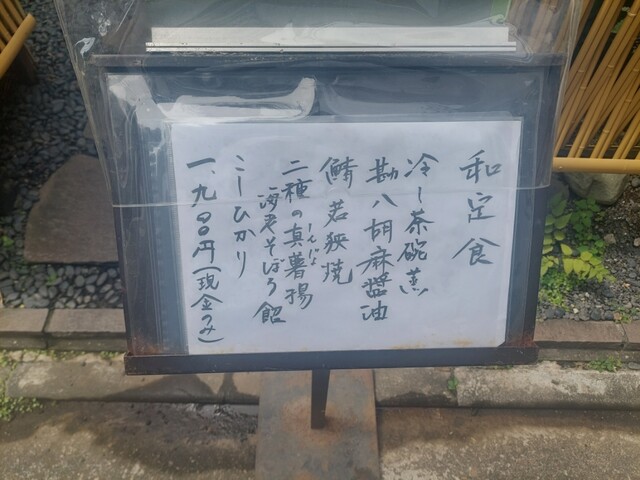 和定食
冷し茶碗蒸
勘八胡麻醤油
鯖若狭焼
二種の真薯揚
しんじょ
海老そぼろ餡
こしひかり
一、九〇〇円(現金のみ)